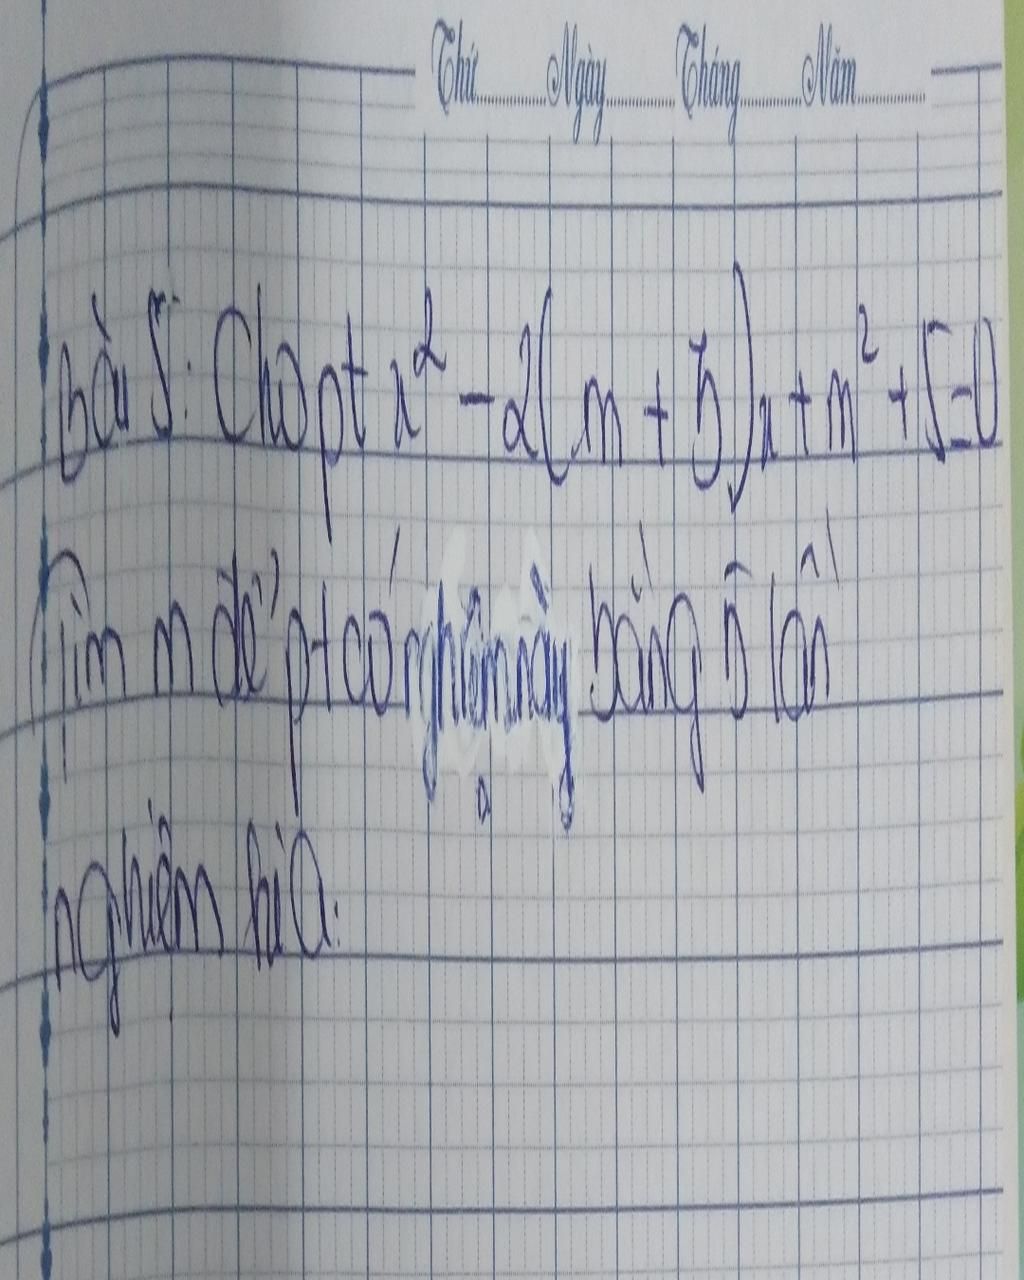 Thứ Ngày Tháng Năm
Bài 5: Cho pt x² - 2(m + 3)x + m² + 5 = 0
Tìm m để pt có nghiệm này bằng 3 lần
nghiệm kia.